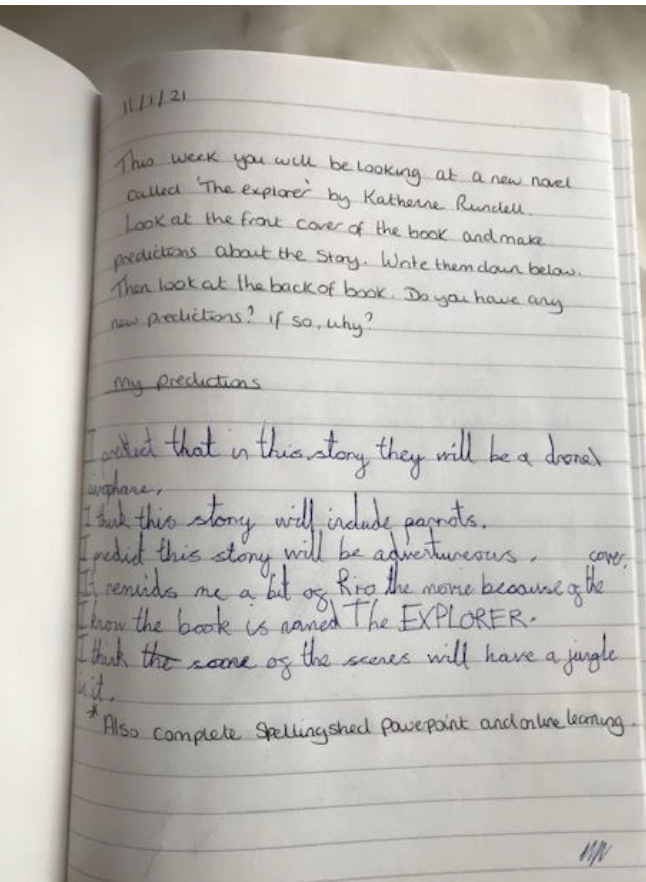 11/1/21
This week you will be looking at a new novel
called 'The explorer' by Katherine Rundell.
Look at the front cover of the book and make
predictions about the story. Write them down below.
Then look at the back of book. Do you have any
new predictions? if so, why?
My predictions
I predict that in this story they will be a
I think this story will include parrots.
I predict this story will be adventureous.
It reminds me a bit of Rio the movie because of the cover.
I know the book is named The EXPLORER.
I think the some of the scenes will have a jungle
in it.
*Also complete Spellingshed powerpoint and online learning.